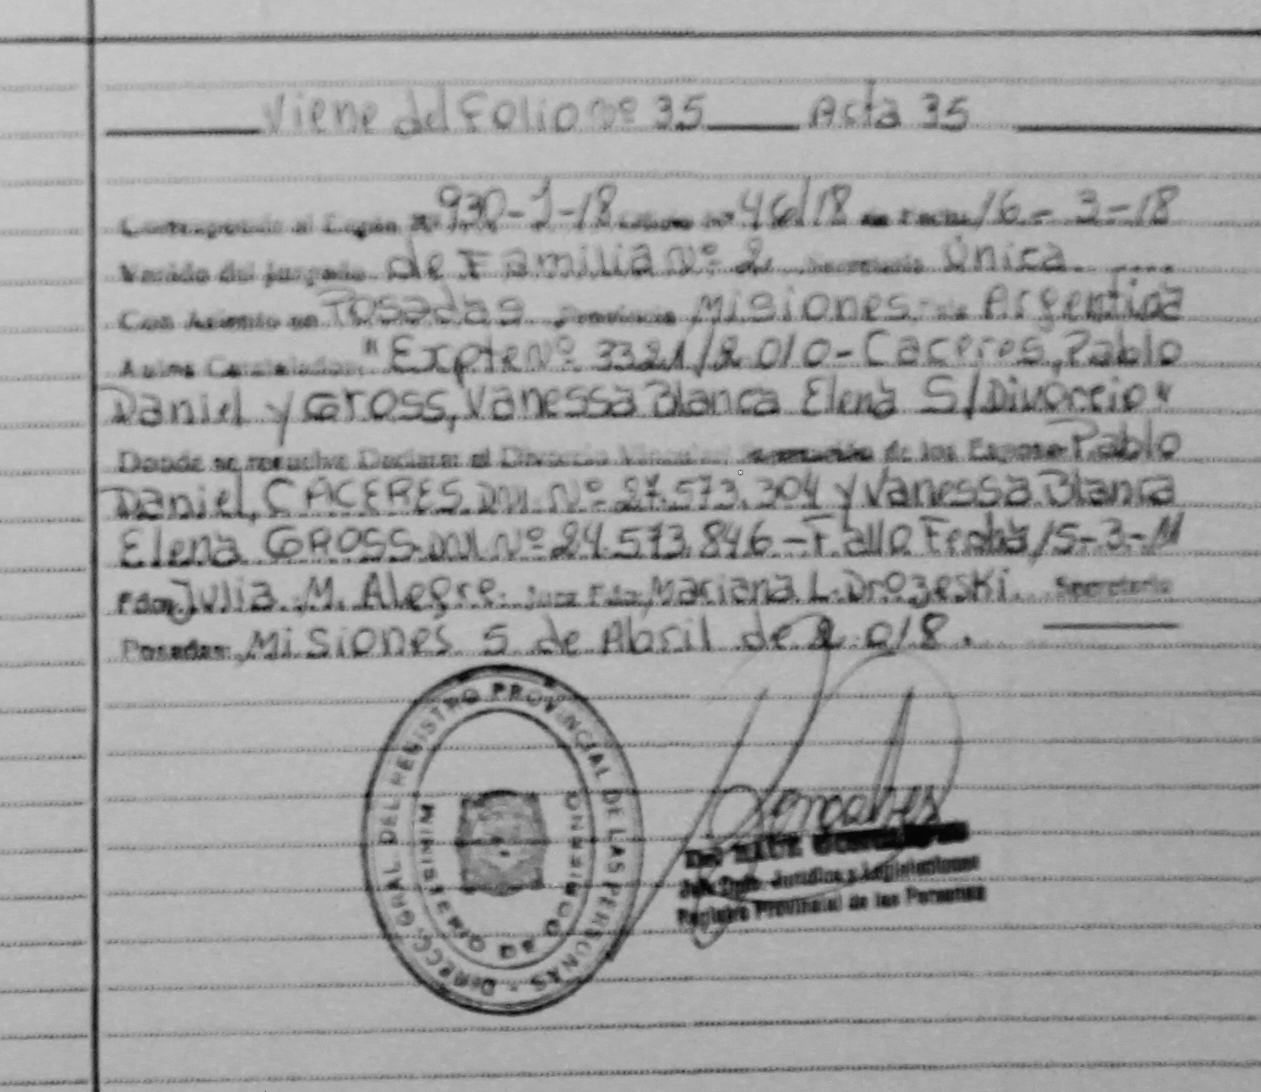 Viene del Folio Nº 35 Acta 35
Corresponde al Legajo Nº 930-J-18 Oficio Nº 46/18 de Fecha 16-3-18
Venido del juzgado de Familia Nº 2 Secretaría Única
Con Asiento en Posadas Provincia Misiones Argentina
Autos Caratulados "Expte Nº 3321/2010-Caceres, Pablo
Daniel y GROSS, Vanessa Blanca Elena S/Divorcio"
Donde se resuelve Declarar el Divorcio Vincular de los Esposos Pablo
Daniel, CACERES DNI Nº 27.573.304 y Vanessa Blanca
Elena GROSS DNI Nº 24.573.846-Fallo Fecha 15-3-11
Fdo Julia M. Alegre Juez Fdo Mariana L. Drozeski. Secretaria
Posadas, Misiones 5 de Abril de 2.018.
DIRECC. GRAL. DEL REGISTRO PROVINCIAL DE LAS PERSONAS
MINISTERIO DE GOBIERNO
Jefe Dpto. Jurídico y Legislaciones
Registro Provincial de las Personas